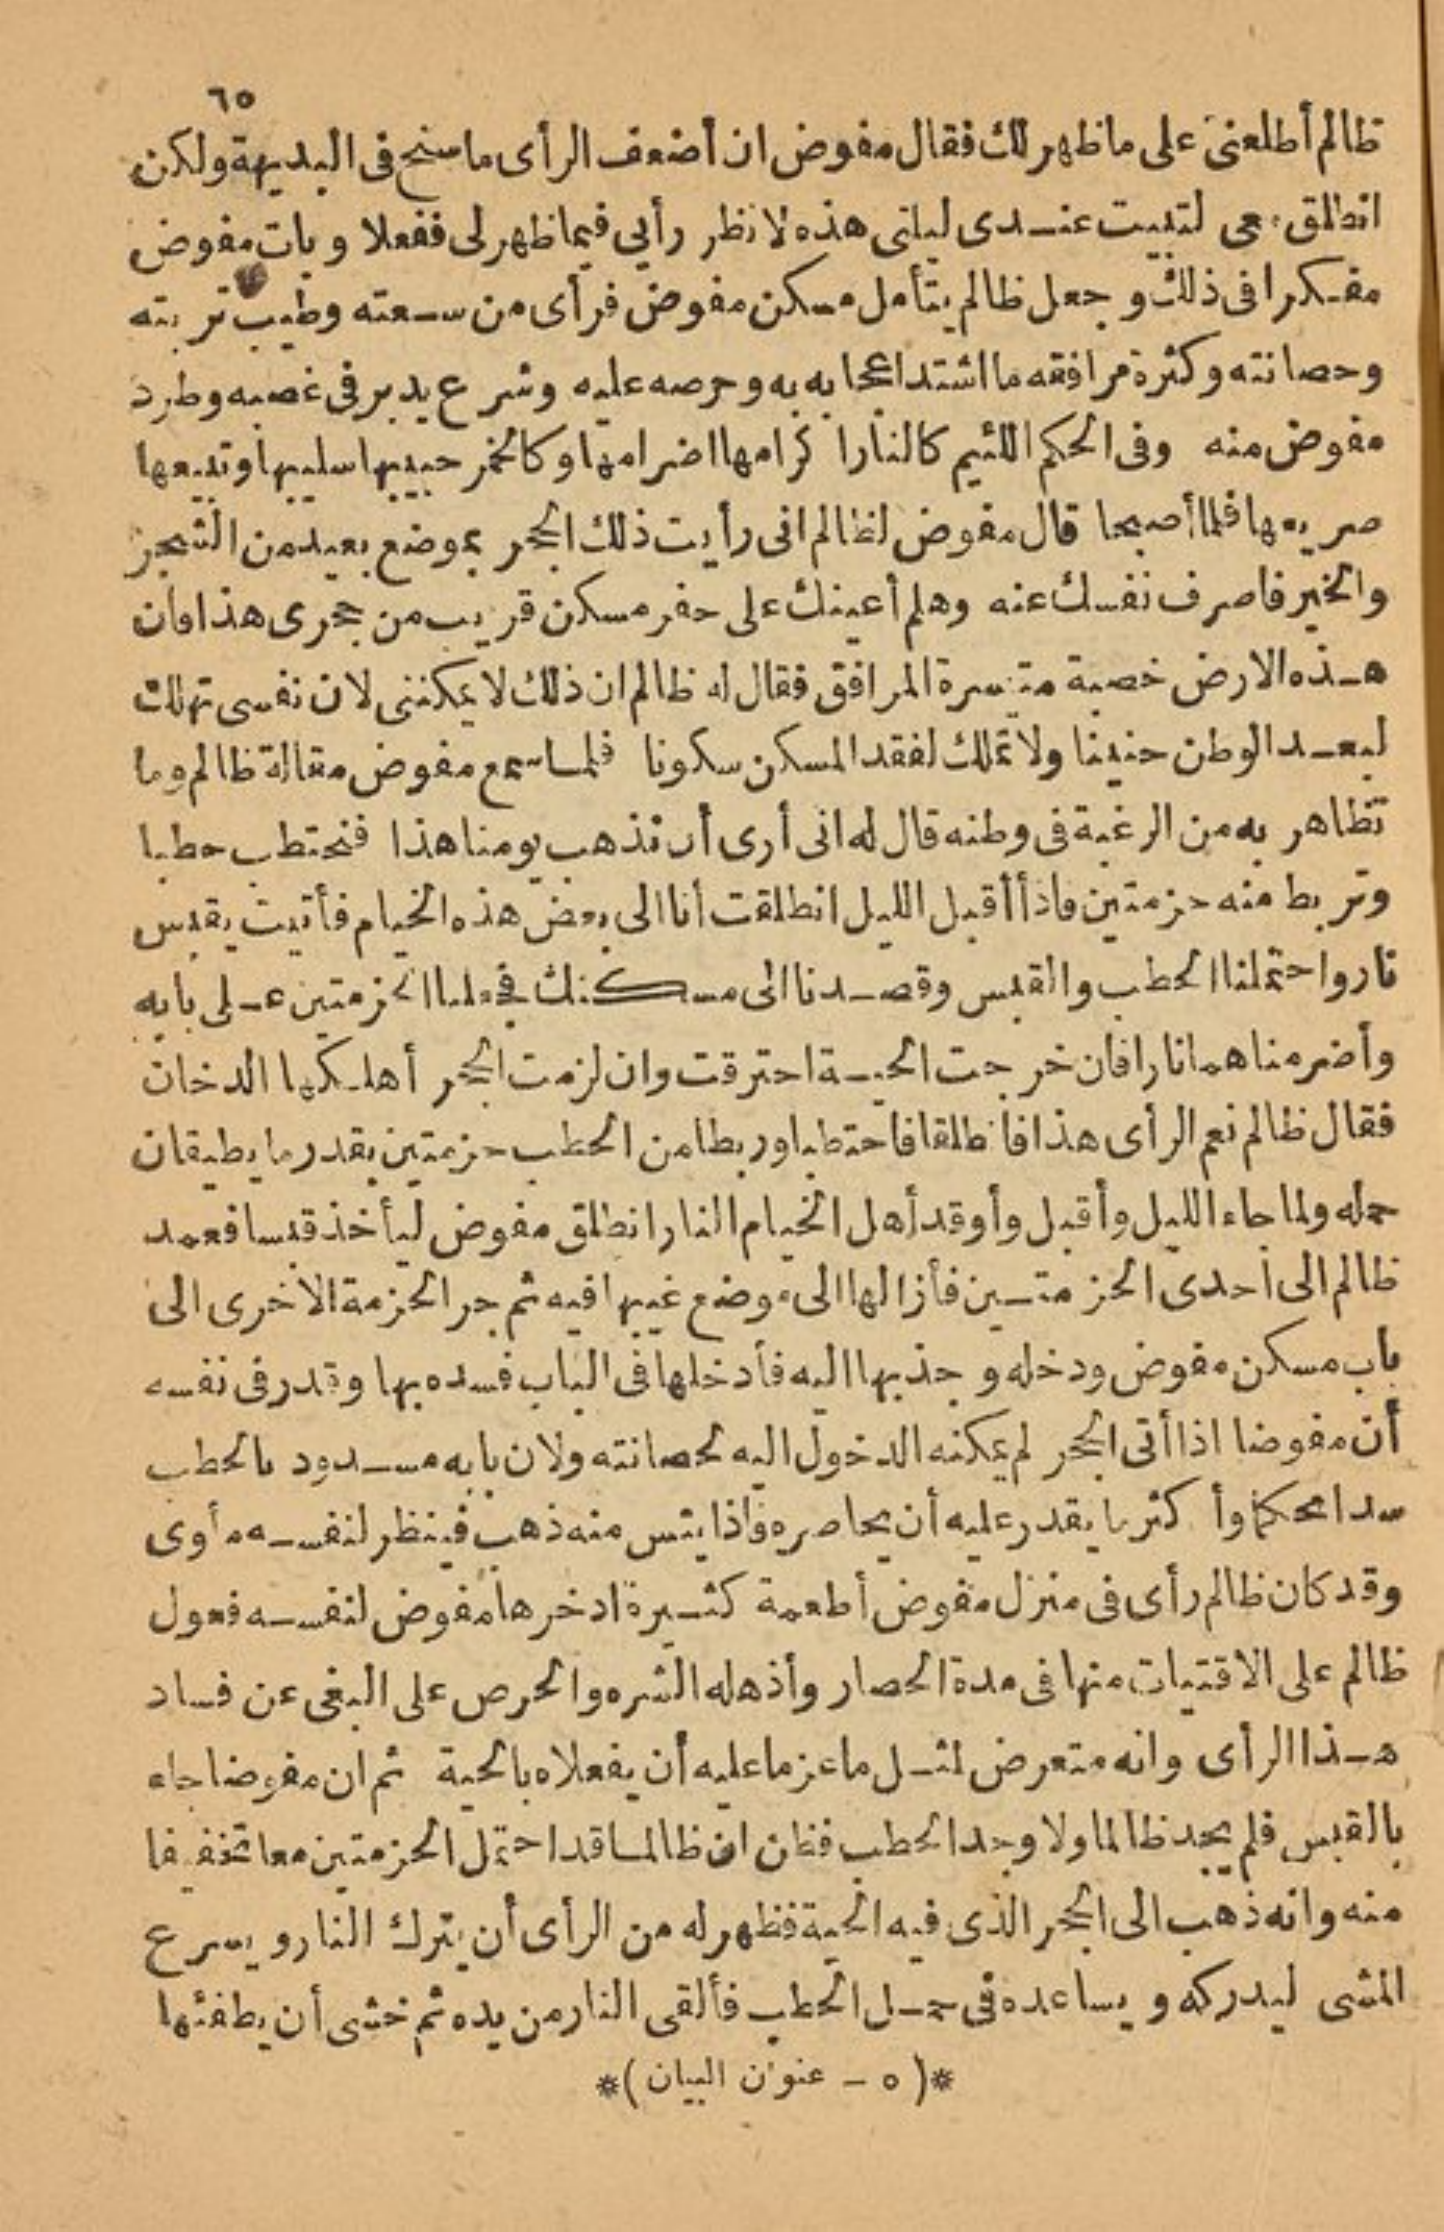 ٦٥
ظالم أطلعنى على ما ظهر لك فقال مفوض ان أضعف الرأى ما سنح فى البديهة ولكن
انطلق معى لتبيت عندى ليلتى هذه لانظر رأيى فيما ظهر لى ففعلا وبات مفوض
مفكرا فى ذلك وجعل ظالم يتأمل مسكن مفوض فرأى من سعته وطيب تربته
وحصانته وكثرة مرافقه ما اشتد اعجابه به وحرصه عليه وشرع يدبر فى غصبه وطرد
مفوض منه وفى الحكم اللئيم كالنار اكرامها اضرامها وكالخمر حبيبها سليبها وتبيعها
صريعها فلما أصبحا قال مفوض لظالم انى رأيت ذلك الجحر بموضع بعيد من الشجر
والخير فاصرف نفسك عنه وهلم أعينك على حفر مسكن قريب من جحرى هذا فان
هذه الارض خصبة متيسرة المرافق فقال له ظالم ان ذلك لا يمكننى لان نفسى تهلك
لبعد الوطن حنينا ولا تملك لفقد المسكن سكونا فلما سمع مفوض مقالة ظالم وما
تظاهر به من الرغبة فى وطنه قال له انى أرى أن نذهب يومنا هذا فنحتطب حطبا
ونربط منه حزمتين فاذا أقبل الليل انطلقت أنا الى بعض هذه الخيام فأتيت بقبس
نار واحتملنا الحطب والقبس وقصدنا الى مسكنك فجعلنا الحزمتين على بابه
وأضرمناهما نارا فان خرجت الحية احترقت وان لزمت الجحر أهلكها الدخان
فقال ظالم نعم الرأى هذا فانطلقا فاحتطبا وربطا من الحطب حزمتين بقدر ما يطيقان
حمله ولما جاء الليل وأقبل وأوقد أهل الخيام النار انطلق مفوض ليأخذ قبسا فعمد
ظالم الى احدى الحزمتين فأزالها الى موضع غيبها فيه ثم جر الحزمة الاخرى الى
باب مسكن مفوض ودخله وجذبها اليه فأدخلها فى الباب فسده بها وقدر فى نفسه
أن مفوضا اذا أتى الجحر لم يمكنه الدخول اليه لحصانته ولان بابه مسدود بالحطب
سدا محكما وأكثر ما يقدر عليه أن يحاصره فاذا يئس منه ذهب فينظر لنفسه مأوى
وقد كان ظالم رأى فى منزل مفوض أطعمة كثيرة ادخرها مفوض لنفسه فعول
ظالم على الاقتيات منها فى مدة الحصار وأذهله الشره والحرص على البغى عن فساد
هذا الرأى وانه متعرض لمثل ما عزما عليه أن يفعلاه بالحية ثم ان مفوضا جاء
بالقبس فلم يجد ظالما ولا وجد الحطب فظن ان ظالما قد احتمل الحزمتين معا تخفيفا
منه وانه ذهب الى الجحر الذى فيه الحية فظهر له من الرأى أن يترك النار ويسرع
المشى ليدركه ويساعده فى حمل الحطب فألقى النار من يده ثم خشى أن يطفئها
*(٥ - عنوان البيان)*